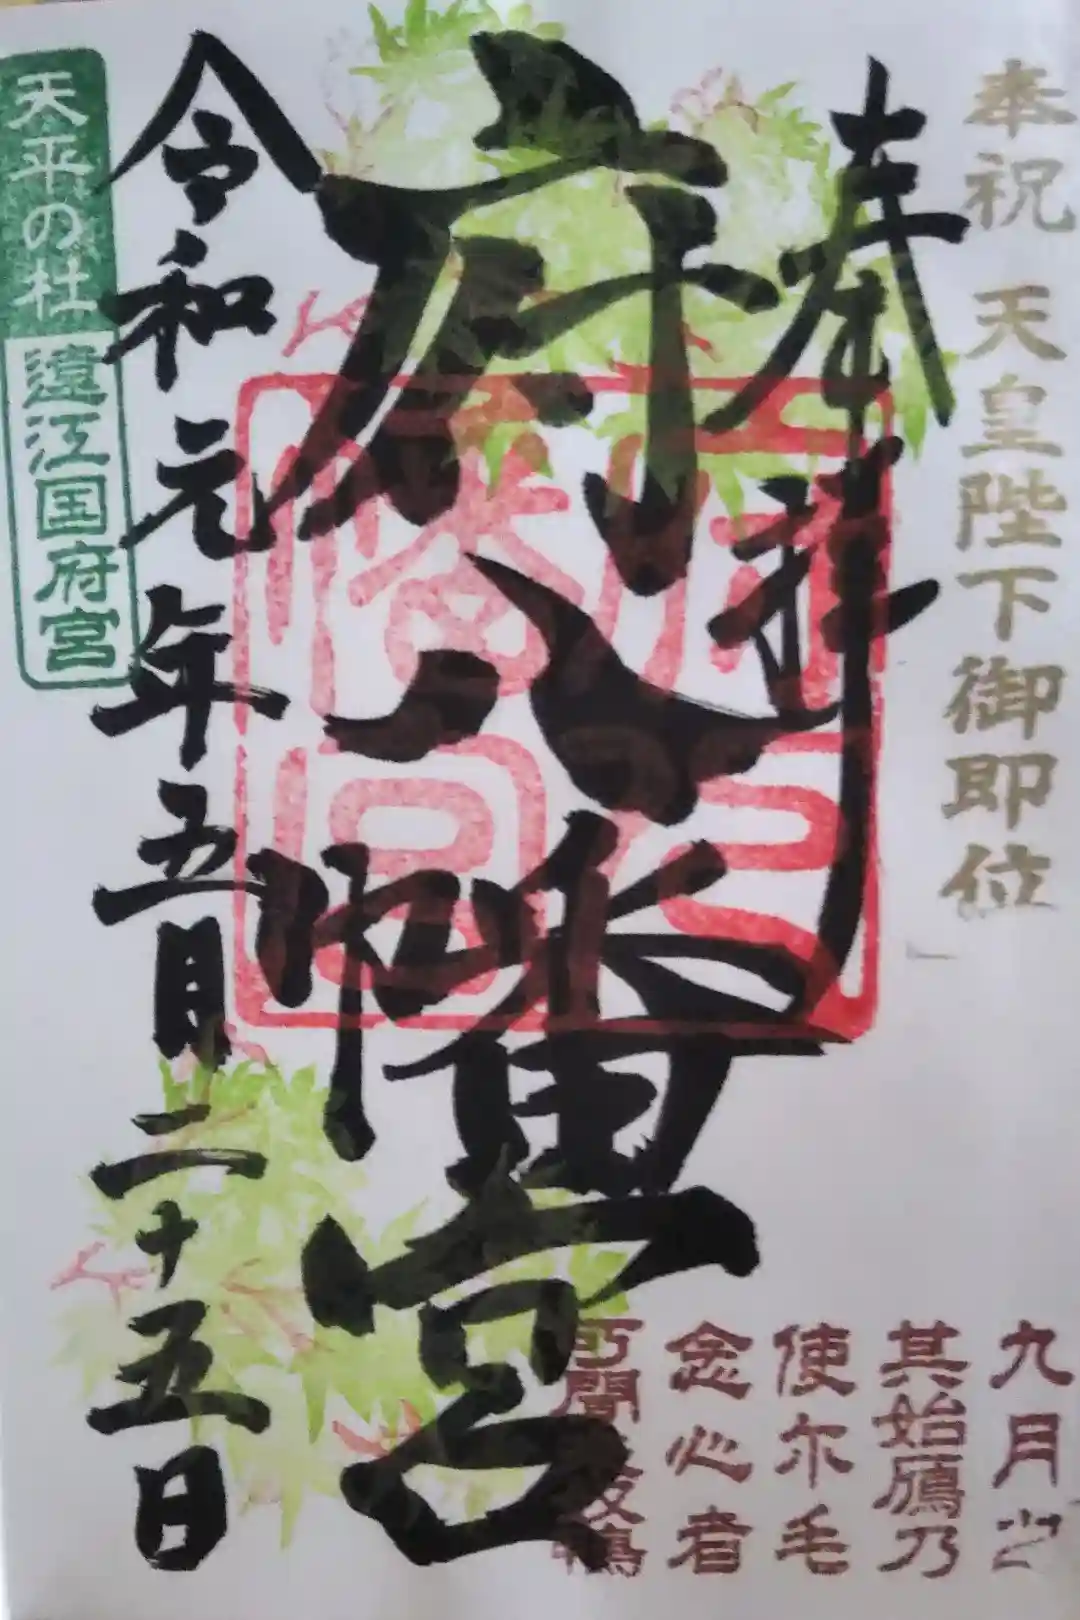 奉祝 天皇陛下御即位
奉拝
府八幡宮
令和元年五月二十五日
天平の杜 遠江国府宮
府八幡宮
九月之
其始鴈乃
使尓毛
念心者
可聞来鴨